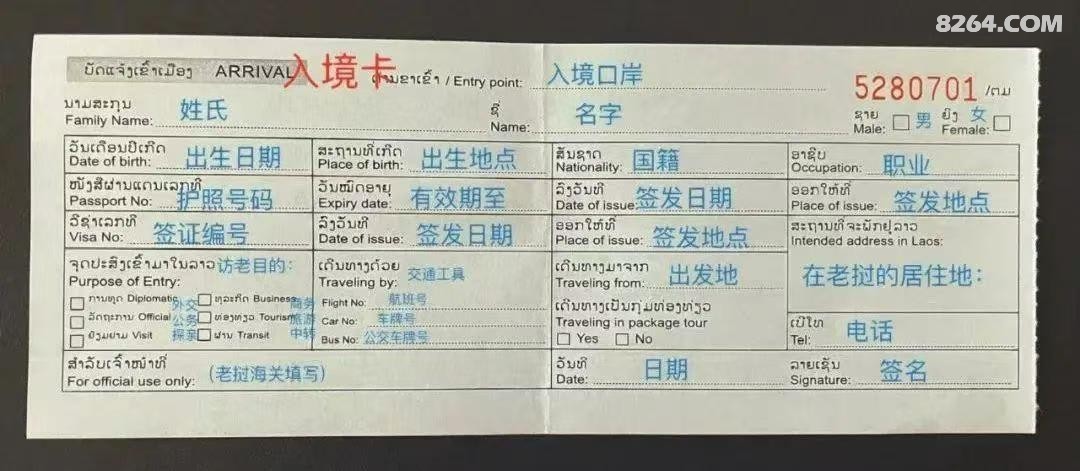 8264.COM
ບັດແຈ້ງເຂົ້າເມືອງ ARRIVAL 入境卡 ດ່ານຂາເຂົ້າ / Entry point: 入境口岸 5280701 /ຕມ
ນາມສະກຸນ 姓氏 ຊື່ 名字 ຊາຍ 男 ຍິງ 女
Family Name: Name: Male: Female:
ວັນເດືອນປີເກີດ ສະຖານທີ່ເກີດ ສັນຊາດ ອາຊີບ
Date of birth: 出生日期 Place of birth: 出生地点 Nationality: 国籍 Occupation: 职业
ໜັງສືຜ່ານແດນເລກທີ ວັນໝົດອາຍຸ ລົງວັນທີ ອອກໃຫ້ທີ່
Passport No: 护照号码 Expiry date: 有效期至 Date of issue: 签发日期 Place of issue: 签发地点
ວີຊ່າເລກທີ ລົງວັນທີ ອອກໃຫ້ທີ່ ສະຖານທີ່ຈະພັກຢູ່ລາວ
Visa No: 签证编号 Date of issue: 签发日期 Place of issue: 签发地点 Intended address in Laos:
ຈຸດປະສົງເຂົ້າມາໃນລາວ 访老目的: ເດີນທາງດ້ວຍ 交通工具 ເດີນທາງມາຈາກ 出发地 在老挝的居住地:
Purpose of Entry: Traveling by: Traveling from:
ການທູດ Diplomatic 外交 ທຸລະກິດ Business 商务 Flight No: 航班号 ເດີນທາງເປັນກຸ່ມທ່ອງທ່ຽວ
ລັດຖະການ Official 公务 ທ່ອງທ່ຽວ Tourism 旅游 Car No: 车牌号 Traveling in package tour ເບີໂທ 电话
ຢ້ຽມຢາມ Visit 探亲 ຜ່ານ Transit 中转 Bus No: 公交车牌号 Yes No Tel:
ສຳລັບເຈົ້າໜ້າທີ່ (老挝海关填写) ວັນທີ 日期 ລາຍເຊັນ 签名
For official use only: Date: Signature: